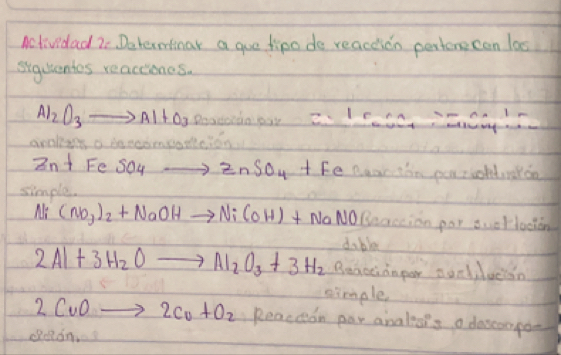 Actividad 2: Determinar a que tipo de reacción pertenecen las
siguientes reacciones.
Al2O3 → Al+O3 Reacción por
analisis o descomposición
Zn + FeSO4 → ZnSO4 + Fe Reacción por sustitución
simple.
Ni(NO3)2 + NaOH → Ni(OH) + NaNO Reacción por sustitución
doble
2Al + 3H2O → Al2O3 + 3H2 Reacción por sustitución
simple
2CuO → 2Cu + O2 Reacción por analisis o descompo-
sición.